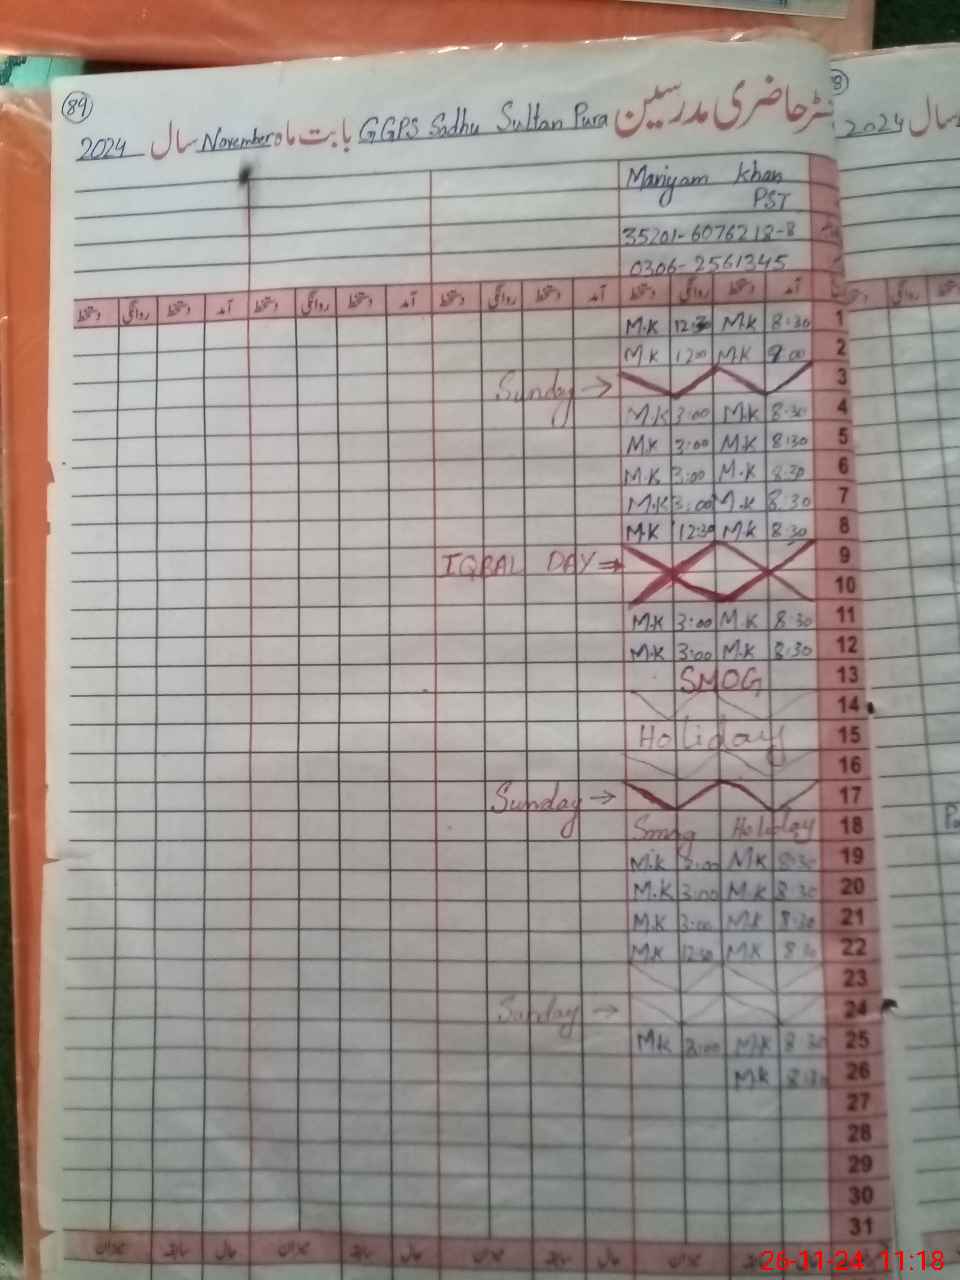 89
2024 سال November بابت ماہ GGPS Sadhu Sultan Pura رجسٹر حاضری مدرسین
2024 سال
Mariyam Khan
PST
35201-6076218-8
0306-2561345
آمد دستخط روانگی دستخط آمد دستخط روانگی دستخط آمد دستخط روانگی دستخط آمد دستخط روانگی دستخط
M.K 12:30 M.K 8:30 1
M.K 12:00 M.K 9:00 2
Sunday → 3
M.K 3:00 M.K 8:30 4
M.K 3:00 M.K 8:30 5
M.K 3:00 M.K 8:30 6
M.K 3:00 M.K 8:30 7
M.K 12:30 M.K 8:30 8
IQBAL DAY ⇒ 9
10
M.K 3:00 M.K 8:30 11
M.K 3:00 M.K 8:30 12
SMOG 13
14
Holiday 15
16
Sunday → 17
Smog Holiday 18
M.K 3:00 M.K 8:30 19
M.K 3:00 M.K 8:30 20
M.K 3:00 M.K 8:30 21
M.K 12:30 M.K 8:30 22
23
Sunday → 24
M.K 3:00 M.K 8:30 25
M.K 8:30 26
27
28
29
30
31
26-11-24 11:18